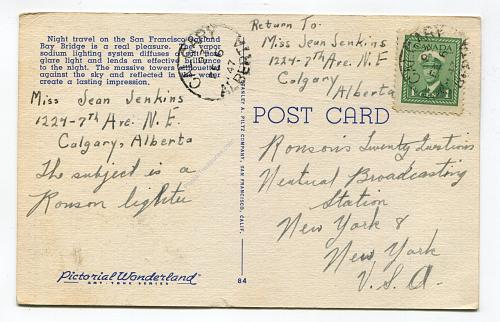 Night travel on the San Francisco-Oakland
Bay Bridge is a real pleasure. The vapor
sodium lighting system diffuses a soft, non-
glare light and lends an effective brilliance
to the night. The massive towers silhouette
against the sky and reflected in the water
create a lasting impression.
Miss Jean Jenkins
1224-7th Ave. N.E.
Calgary, Alberta
The subject is a
Ronson lighter
Pictorial Wonderland
ART-TONE SERIES
STANLEY A. PILTZ COMPANY, SAN FRANCISCO, CALIF.
84
CALGARY
47
ALBERTA
Return To:
Miss Jean Jenkins
1224-7th Ave N.E.
Calgary
Alberta
CANADA
1
POST CARD
Ronson's Twenty Questions
Neutual Broadcasting
Station
New York 8
New York
U.S.A.